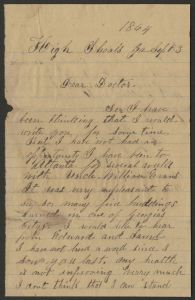 1864
High Shoals Ga Sept 3
Dear Doctor.
Sir I have
been thinking that I would
write you for some time
But I have not had an
opportunity I have been to
Atlanta several weeks
with Uncle William Evans
It was very unpleasant to
see so many fine buildings
burned in one of Georgias
Citys. I would like to hear
from Edward and
I have not hurd a word since I
saw you last, my health
is not improving very much
I dont think that I can stand